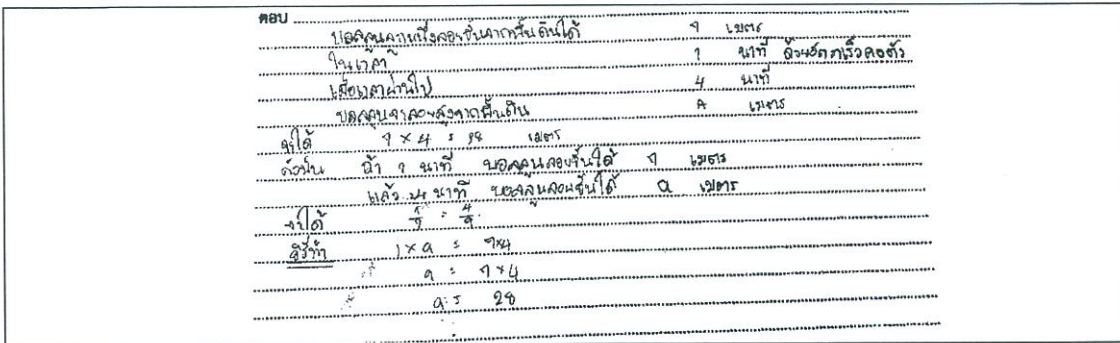 ตอบ
บอลลูนลูกหนึ่งลอยขึ้นจากพื้นดินได้ 7 เมตร
ในเวลา 1 นาที ด้วยอัตราเร็วคงตัว
เมื่อเวลาผ่านไป 4 นาที
บอลลูนจะลอยสูงจากพื้นดิน A เมตร
จะได้ 7 × 4 = 28 เมตร
ดังนั้น ถ้า 1 นาที บอลลูนลอยขึ้นได้ 7 เมตร
แล้ว 4 นาที บอลลูนลอยขึ้นได้ a เมตร
จะได้
วิธีทำ 1 × a = 7×4
a = 7 × 4
a = 28